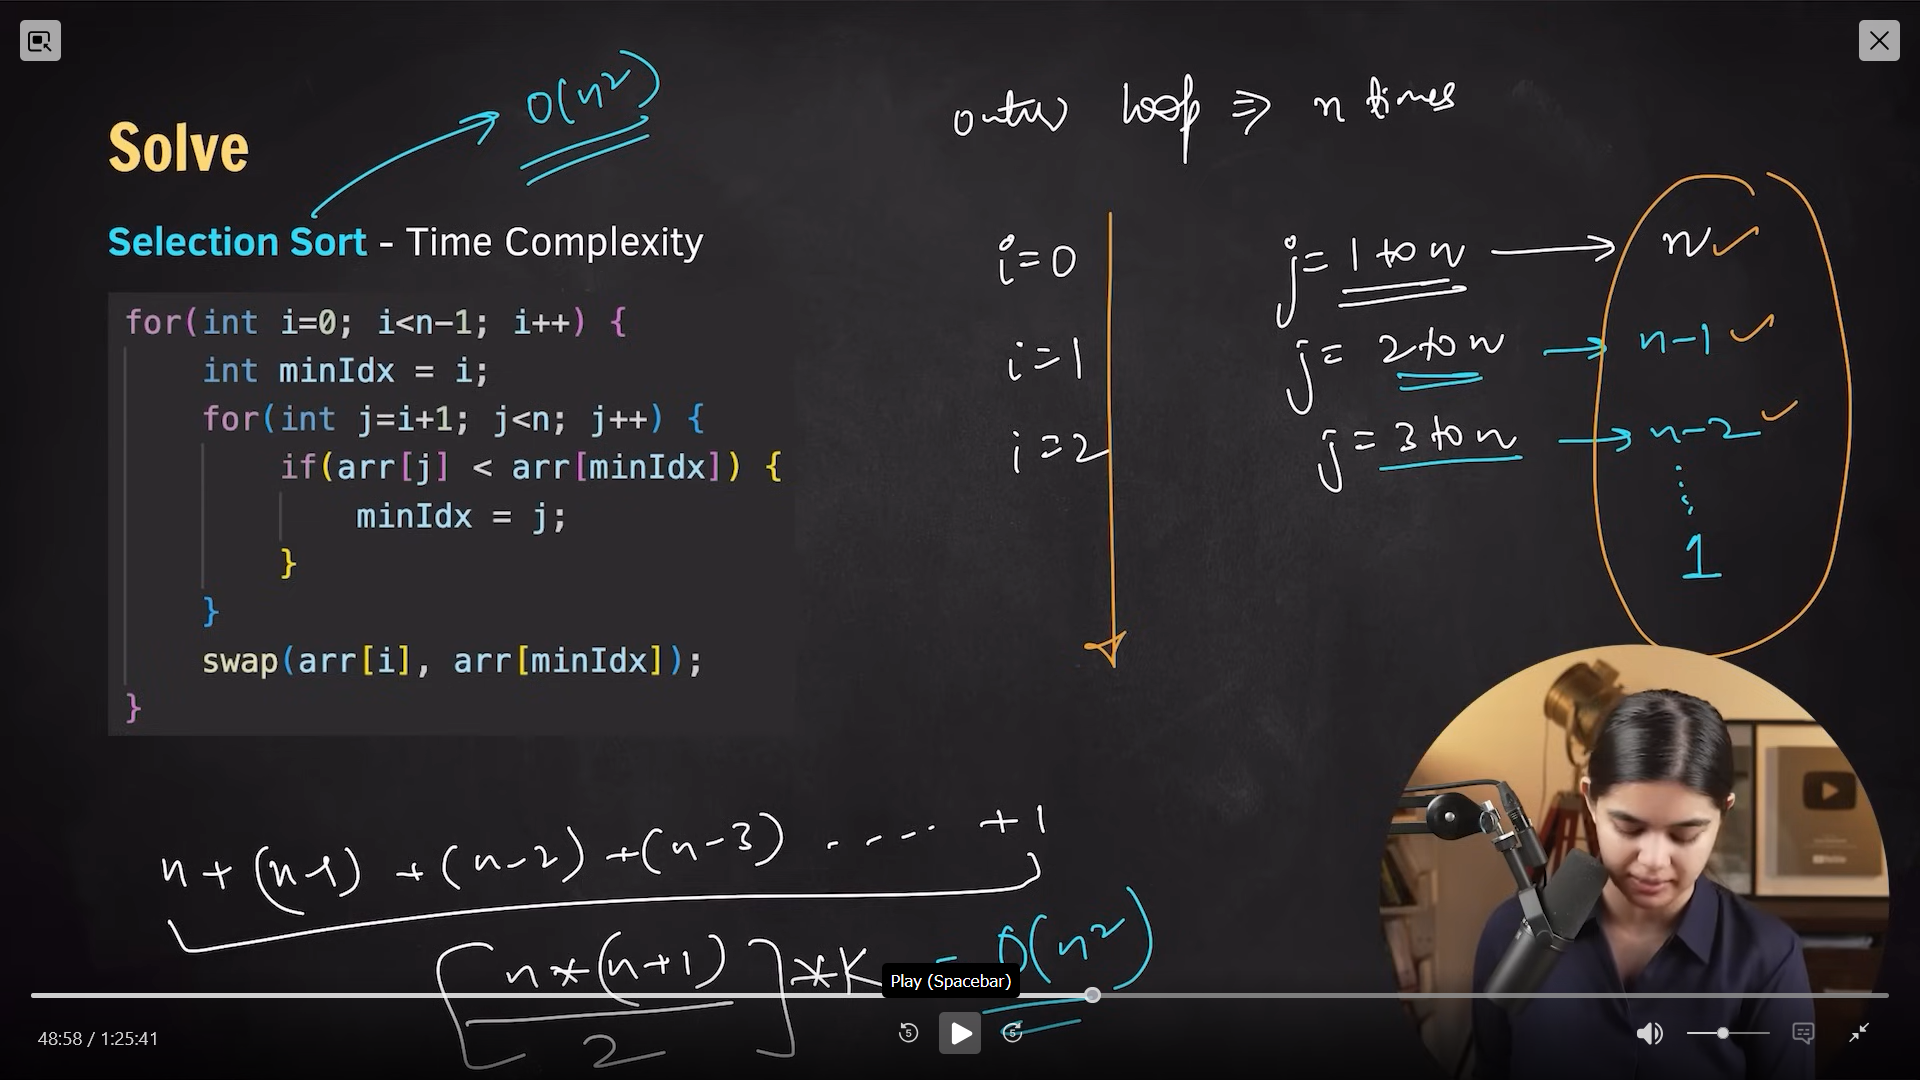 Solve
O(n²)
Selection Sort - Time Complexity
for(int i=0; i<n-1; i++) {
int minIdx = i;
for(int j=i+1; j<n; j++) {
if(arr[j] < arr[minIdx]) {
minIdx = j;
}
}
swap(arr[i], arr[minIdx]);
}
outer loop ⇒ n times
i=0 j= 1 to n → n ✓
i=1 j= 2 to n → n-1 ✓
i=2 j= 3 to n → n-2 ✓
⋮
1
n + (n-1) + (n-2) + (n-3) ..... +1
[n*(n+1)/2] *K = O(n²)
Play (Spacebar)
48:58 / 1:25:41
5
5